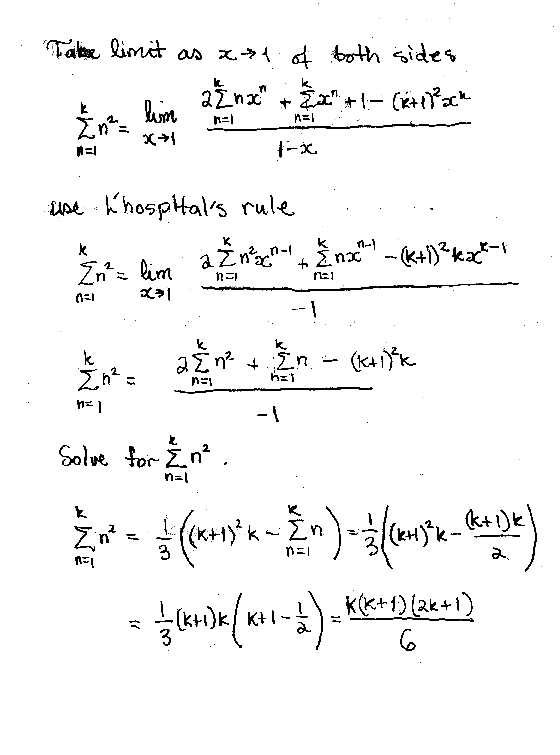 Take limit as x→1 of both sides
\sum_{n=1}^{k} n^2 = \lim_{x→1} \frac{2\sum_{n=1}^{k} nx^n + \sum_{n=1}^{k} x^n + 1 - (k+1)^2 x^k}{1-x}
use L'hospital's rule
\sum_{n=1}^{k} n^2 = \lim_{x→1} \frac{2\sum_{n=1}^{k} n^2 x^{n-1} + \sum_{n=1}^{k} nx^{n-1} - (k+1)^2 kx^{k-1}}{-1}
\sum_{n=1}^{k} n^2 = \frac{2\sum_{n=1}^{k} n^2 + \sum_{n=1}^{k} n - (k+1)^2 k}{-1}
Solve for \sum_{n=1}^{k} n^2 .
\sum_{n=1}^{k} n^2 = \frac{1}{3}\left((k+1)^2 k - \sum_{n=1}^{k} n\right) = \frac{1}{3}\left((k+1)^2 k - \frac{(k+1)k}{2}\right)
= \frac{1}{3}(k+1)k\left(k+1-\frac{1}{2}\right) = \frac{k(k+1)(2k+1)}{6}